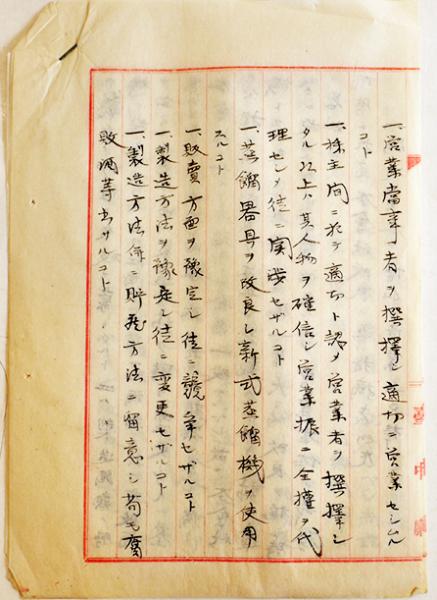 一、営業當事者ヲ撰擇シ適切ニ営業セシムル
コト
一、株主間ニ於テ適切ト認メ営業者ヲ撰擇シ
タル以上ハ其人物ヲ確信シ営業振ニ全権ヲ代
理セシメ徒ニ関渉セザルコト
一、蒸餾器具ヲ改良シ新式蒸餾機ヲ使用
スルコト
一、販賣方面ヲ豫定シ徒ニ競争セザルコト
一、製造方法ヲ豫定シ徒ニ変更セザルコト
一、製造方法併ニ貯蔵方法ニ留意シ苟モ腐
敗酒等出サルコト